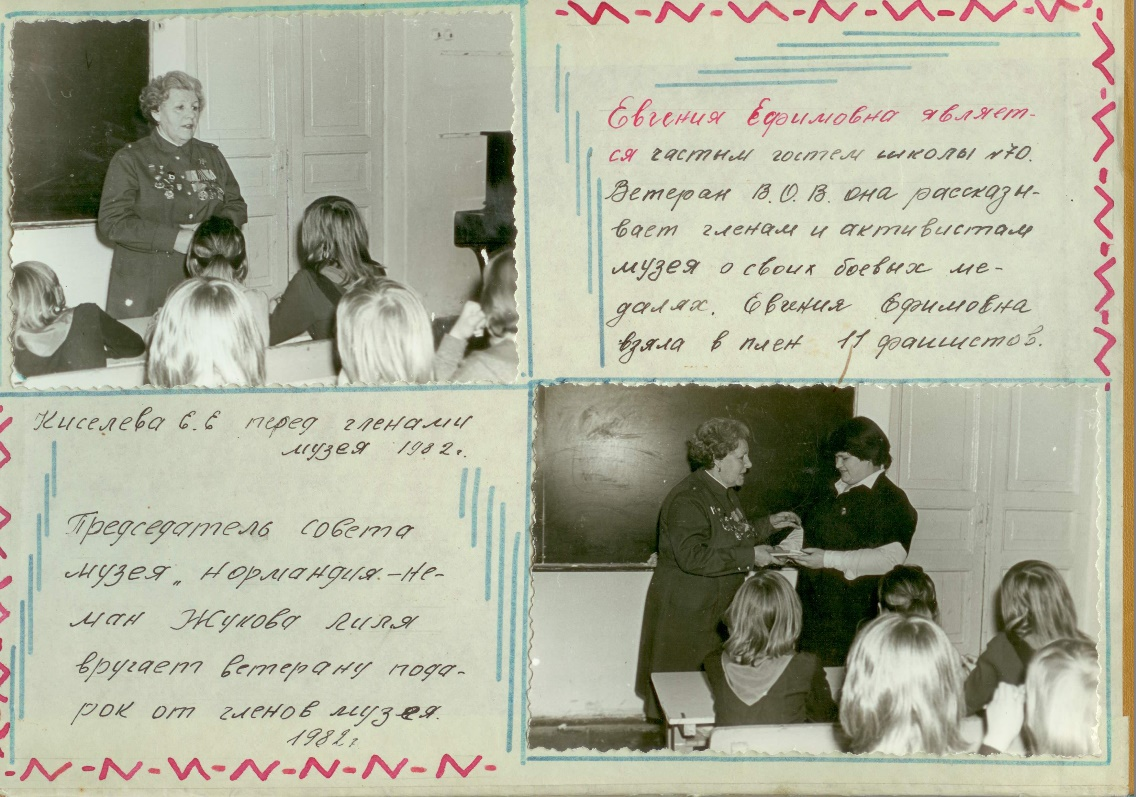 Евгения Ефимовна являет-
ся частым гостем школы №70.
Ветеран В.О.В. она рассказы-
вает членам и активистам
музея о своих боевых ме-
далях. Евгения Ефимовна
взяла в плен 11 фашистов.
Киселева Е.Е перед членами
музея 1982г.
Председатель совета
музея „Нормандия-не-
ман Жукова Лиля
вручает ветерану пода-
рок от членов музея.
1982г